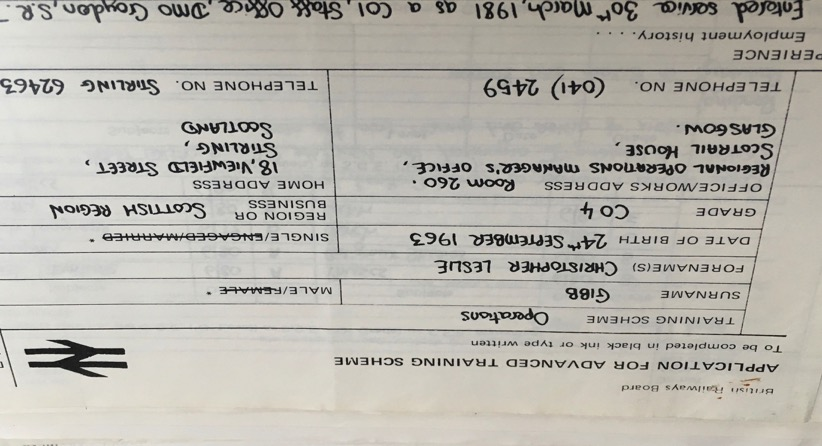 British Railways Board
APPLICATION FOR ADVANCED TRAINING SCHEME
To be completed in black ink or type written
TRAINING SCHEME Operations
SURNAME GIBB MALE/FEMALE *
FORENAME(S) CHRISTOPHER LESLIE
DATE OF BIRTH 24th SEPTEMBER 1963 SINGLE/ENGAGED/MARRIED *
GRADE CO4 REGION OR BUSINESS SCOTTISH REGION
OFFICE/WORKS ADDRESS ROOM 260. HOME ADDRESS
REGIONAL OPERATIONS MANAGER'S OFFICE, 18, VIEWFIELD STREET,
SCOTRAIL HOUSE, STIRLING,
GLASGOW. SCOTLAND
TELEPHONE NO. (041) 2459 TELEPHONE NO. STIRLING 62463
PERIENCE
Employment history. . . .
Entered service 30th March, 1981 as a CO1, Staff Office, DMO Croydon, S.R.